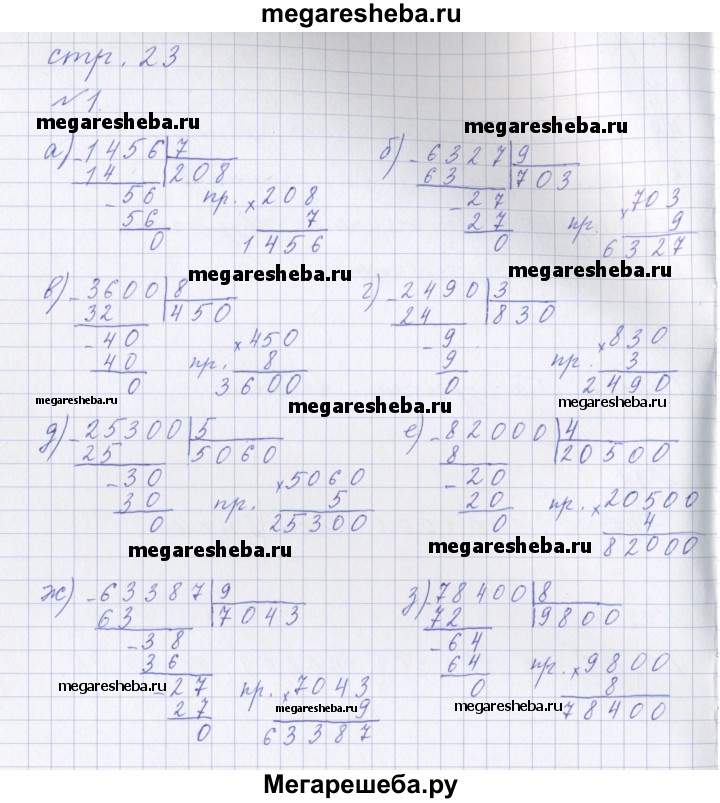 megaresheba.ru
стр. 23
№ 1.
megaresheba.ru
megaresheba.ru
а) - 1456 | 7
14 | 208
- 56 пр. × 208
56 7
0 1456
б) - 6327 | 9
63 | 703
- 27 × 703
27 пр. 9
0 6327
megaresheba.ru
megaresheba.ru
в) - 3600 | 8
32 | 450
- 40 × 450
40 пр. 8
0 3600
г) - 2490 | 3
24 | 830
- 9 × 830
9 пр. 3
0 2490
megaresheba.ru
megaresheba.ru
megaresheba.ru
д) - 25300 | 5
25 | 5060
- 30 × 5060
30 пр. 5
0 25300
е) - 82000 | 4
8 | 20500
- 20
20 пр. × 20500
0 4
82000
megaresheba.ru
megaresheba.ru
ж) - 63387 | 9
63 | 7043
- 38
36
- 27 пр. × 7043
27 9
0 63387
з) - 78400 | 8
72 | 9800
- 64
64 пр. × 9800
0 8
78400
megaresheba.ru
megaresheba.ru
megaresheba.ru
Мегарешеба.ру